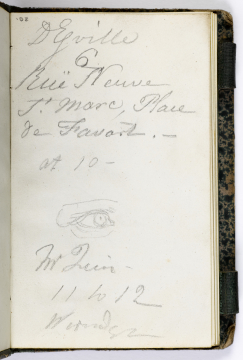 D'Egville
6
Rüe Neuve
St. Marc, Place
de Favart. —
at 10 —
Mr
11 to 12